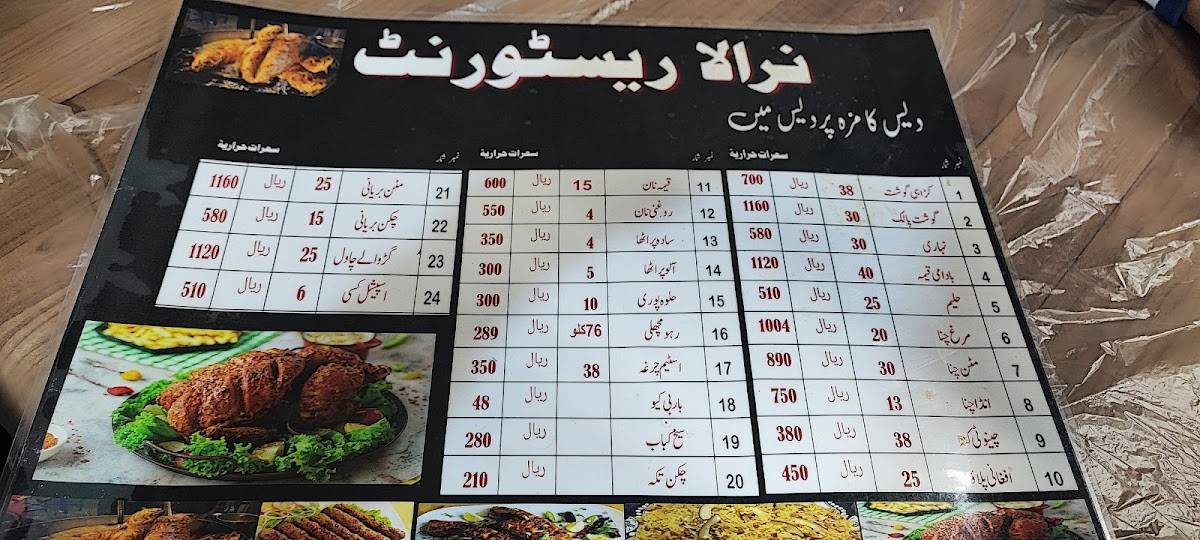 نرالا ریسٹورنٹ
دیس کا مزہ پردیس میں
نمبر شمار سعرات حرارية
1 کڑاہی گوشت 38 ریال 700
2 گوشت پالک 30 ریال 1160
3 نہاری 30 ریال 580
4 بادامی قیمہ 40 ریال 1120
5 حلیم 25 ریال 510
6 مرغ چنا 20 ریال 1004
7 مٹن چنا 30 ریال 890
8 انڈا چنا 13 ریال 750
9 چنیوٹی 38 ریال 380
10 افغانی پلاؤ 25 ریال 450
نمبر شمار سعرات حرارية
11 قیمہ نان 15 ریال 600
12 روغنی نان 4 ریال 550
13 سادہ پراٹھا 4 ریال 350
14 آلو پراٹھا 5 ریال 300
15 حلوہ پوری 10 ریال 300
16 رہو مچھلی 76کلو ریال 289
17 اسٹیم چرغہ 38 ریال 350
18 بار بی کیو ریال 48
19 سیخ کباب ریال 280
20 چکن تکہ ریال 210
نمبر شمار سعرات حرارية
21 مٹن بریانی 25 ریال 1160
22 چکن بریانی 15 ریال 580
23 گڑ والے چاول 25 ریال 1120
24 اسپیشل لسی 6 ریال 510